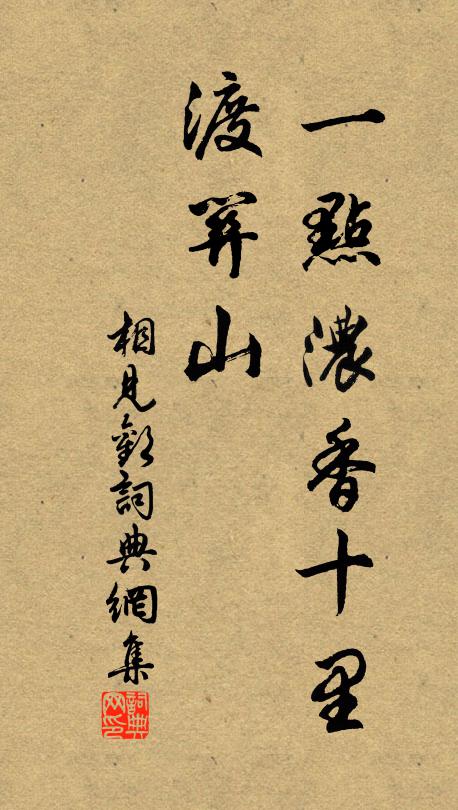 一點濃香十里
渡關山
相見歡詞典網集
詞典
网印